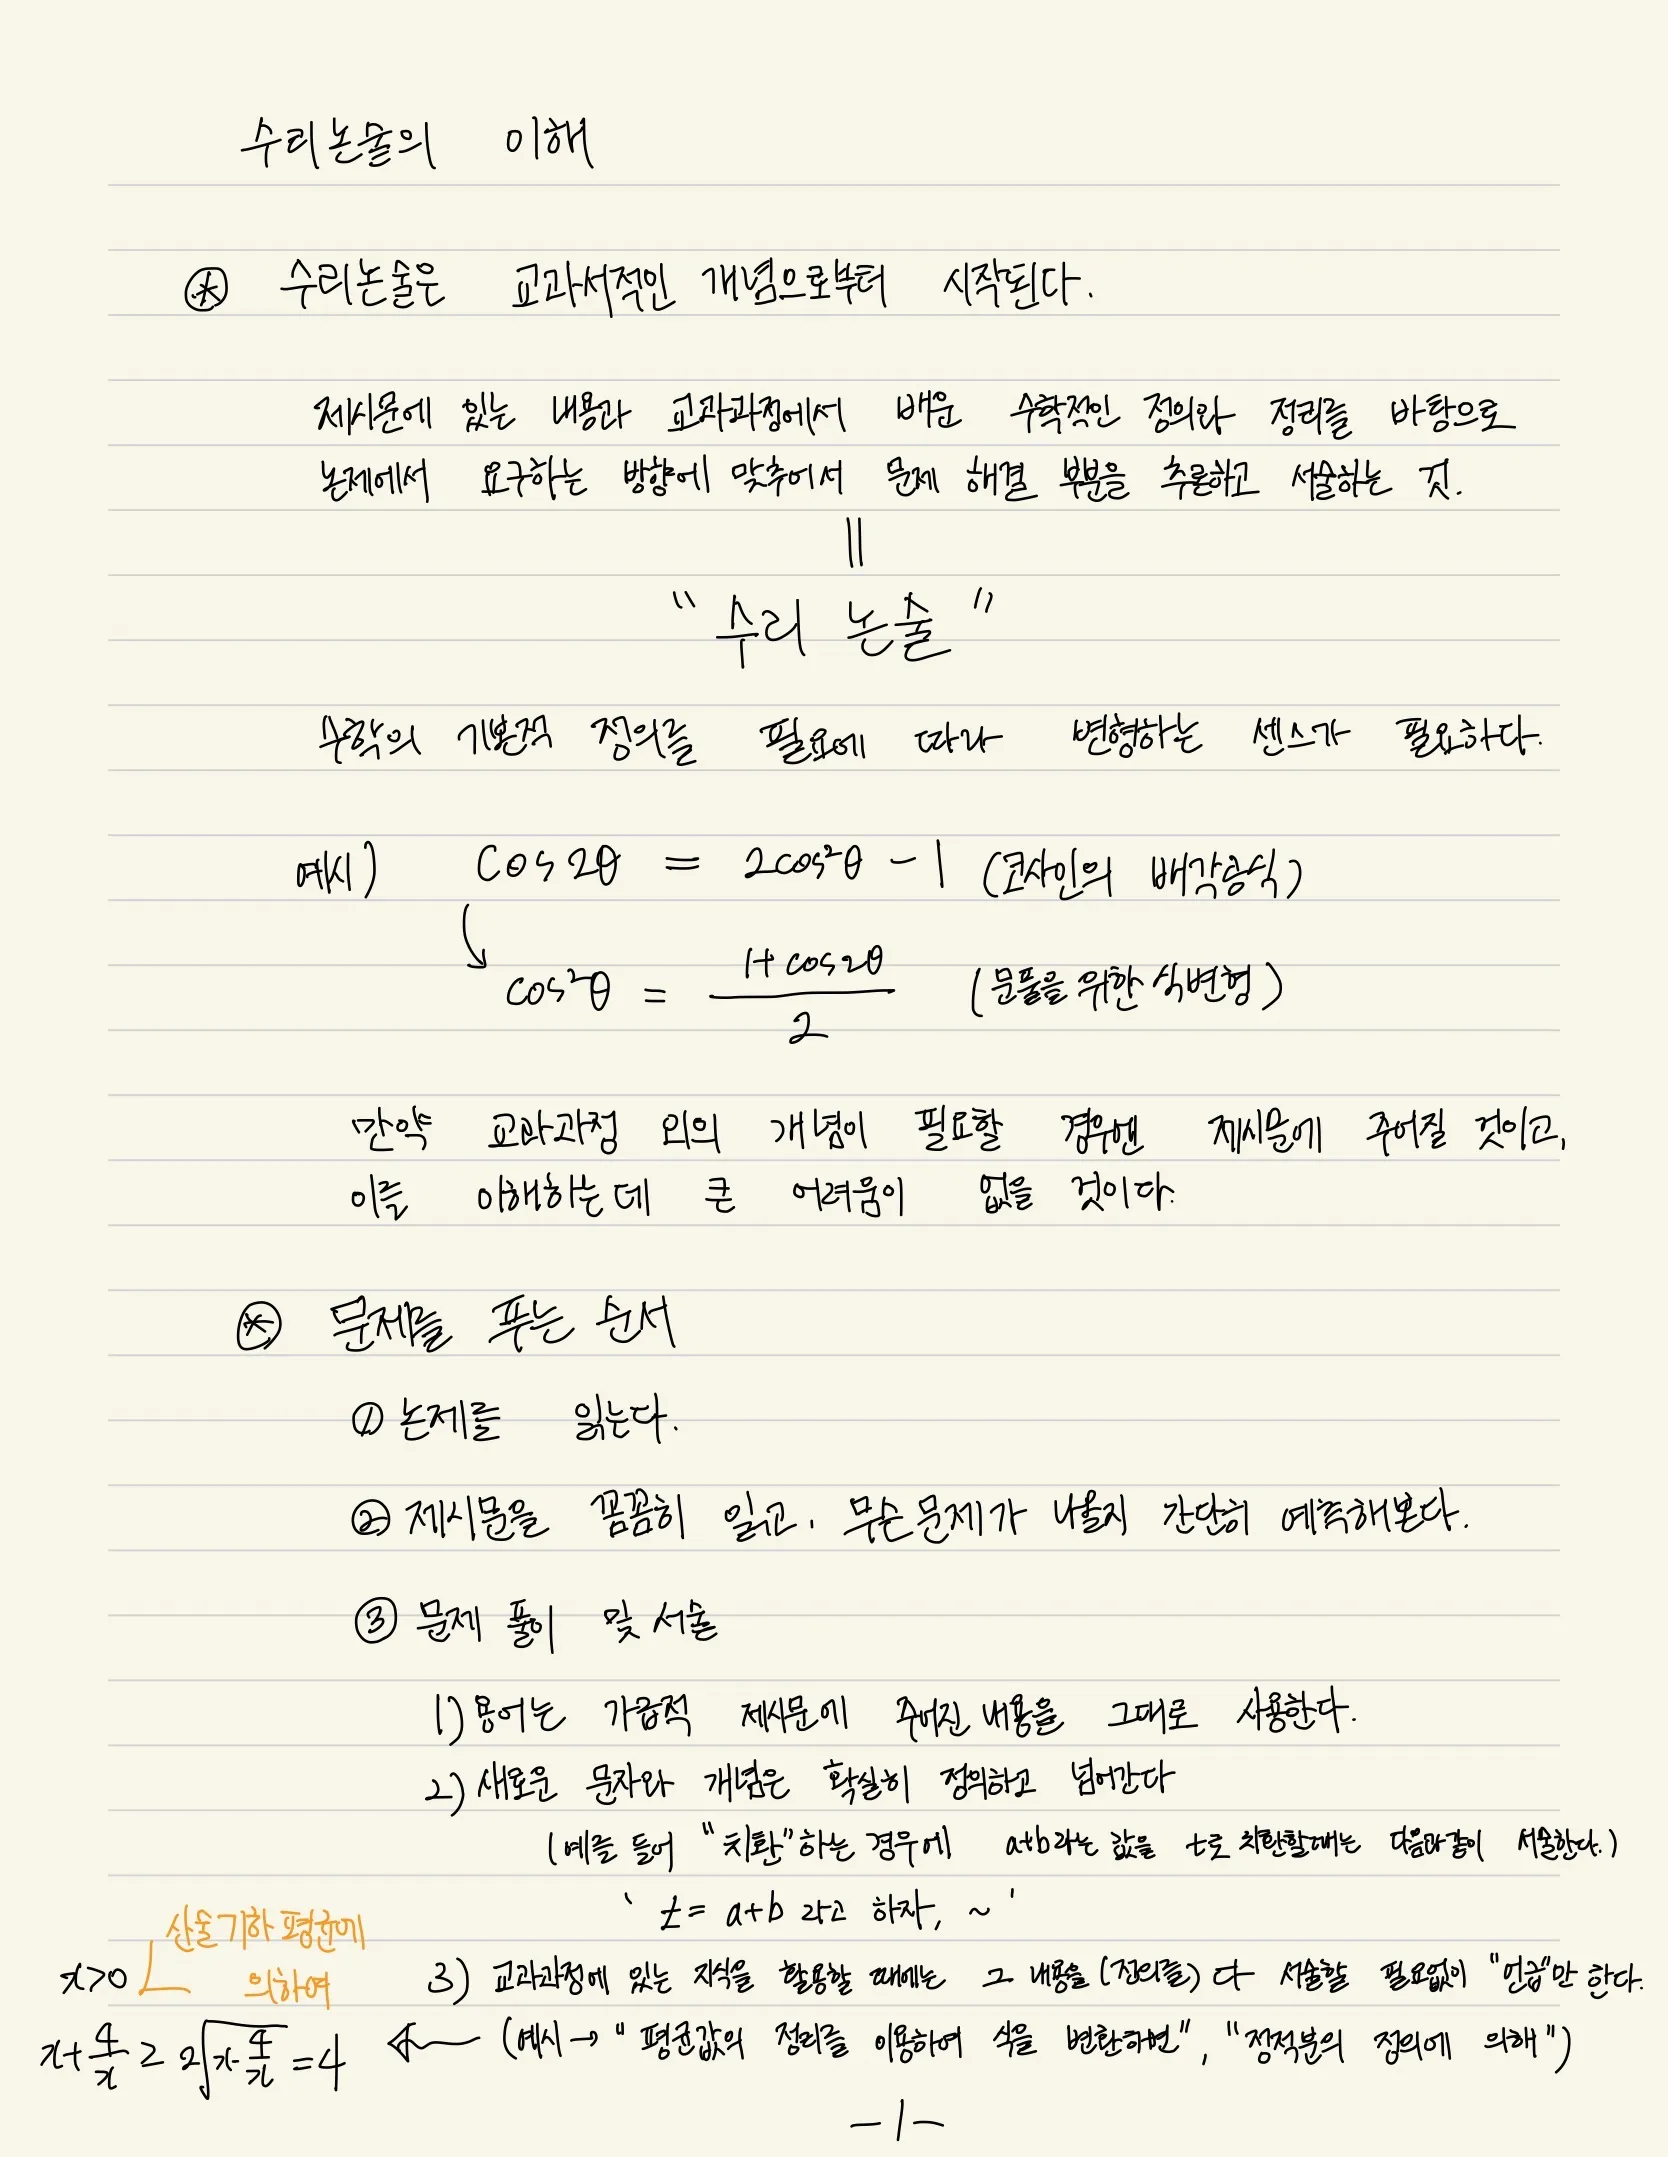 수리논술의 이해
⊛ 수리논술은 교과서적인 개념으로부터 시작된다.
제시문에 있는 내용과 교과과정에서 배운 수학적인 정의와 정리를 바탕으로
논제에서 요구하는 방향에 맞추어서 문제 해결 부분을 추론하고 서술하는 것.
||
"수리 논술"
수학의 기본적 정의를 필요에 따라 변형하는 센스가 필요하다.
예시) cos2θ = 2cos²θ - 1 (코사인의 배각공식)
↳ cos²θ = (1+cos2θ)/2 (문풀을 위한 식변형)
만약 교과과정 외의 개념이 필요할 경우엔 제시문에 주어질 것이고,
이를 이해하는데 큰 어려움이 없을 것이다.
⊛ 문제를 푸는 순서
① 논제를 읽는다.
② 제시문을 꼼꼼히 읽고, 무슨 문제가 나올지 간단히 예측해본다.
③ 문제 풀이 및 서술
1) 용어는 가급적 제시문에 주어진 내용을 그대로 사용한다.
2) 새로운 문자와 개념은 확실히 정의하고 넘어간다
(예를 들어 "치환"하는 경우에 a+b라는 값을 t로 치환할때는 다음과같이 서술한다.)
' t = a+b 라고 하자, ~ '
3) 교과과정에 있는 지식을 활용할 때에는 그 내용을 (정의를) 다 서술할 필요없이 "언급"만 한다.
(예시→ "평균값의 정리를 이용하여 식을 변환하면", "정적분의 정의에 의해")
산술기하평균에
의하여
x>0
x+4/x ≥ 2√(x·4/x) = 4 ←
-1-